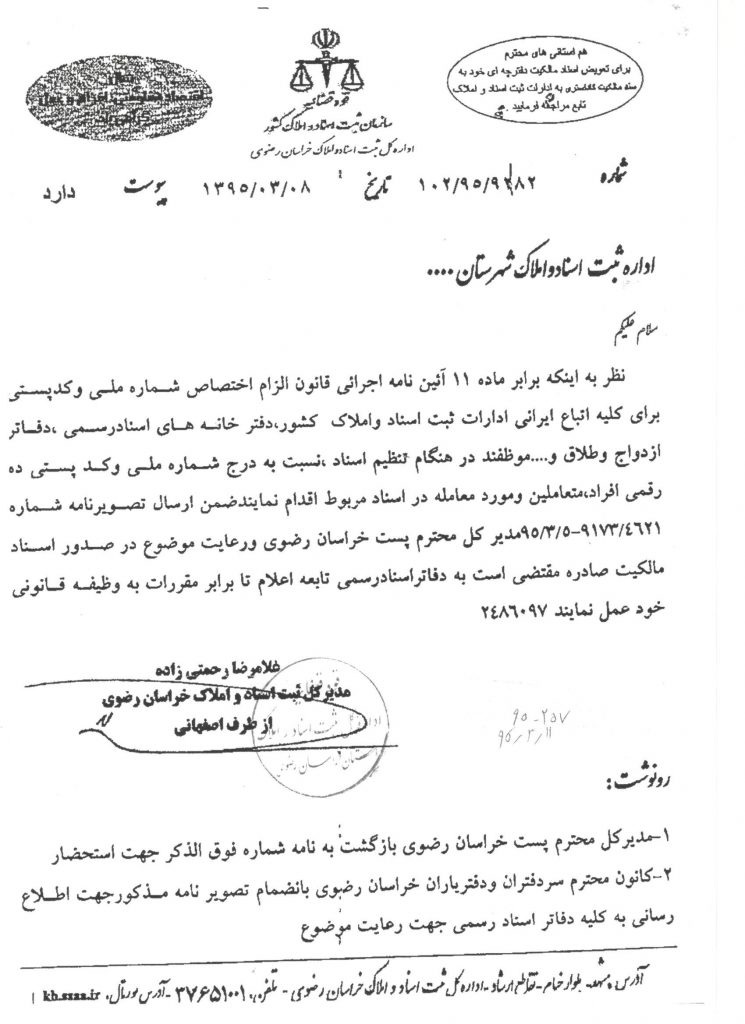 هم استانی های محترم
برای تعویض اسناد مالکیت دفترچه ای خود به
سند مالکیت کاداستری به ادارات ثبت اسناد و املاک
تابع مراجعه فرمایید.
قوه قضائیه
سازمان ثبت اسناد و املاک کشور
اداره کل ثبت اسناد و املاک خراسان رضوی
شماره ۱۰۲/۹۵/۹۲۸۲ تاریخ : ۱۳۹۵/۰۳/۰۸ پیوست دارد
اداره ثبت اسناد و املاک شهرستان ....
سلام علیکم
نظر به اینکه برابر ماده ۱۱ آئین نامه اجرائی قانون الزام اختصاص شماره ملی وکدپستی
برای کلیه اتباع ایرانی ادارات ثبت اسناد واملاک کشور،دفتر خانه های اسنادرسمی ،دفاتر
ازدواج وطلاق و....موظفند در هنگام تنظیم اسناد ،نسبت به درج شماره ملی وکد پستی ده
رقمی افراد،متعاملین ومورد معامله در اسناد مربوط اقدام نمایندضمن ارسال تصویرنامه شماره
۹۱۷۳/۴۶۲۱-۹۵/۳/۵مدیر کل محترم پست خراسان رضوی ورعایت موضوع در صدور اسناد
مالکیت صادره مقتضی است به دفاتراسنادرسمی تابعه اعلام تا برابر مقررات به وظیفه قانونی
خود عمل نمایند ۲۴۸۶۰۹۷
غلامرضا رحمتی زاده
مدیرکل ثبت اسناد و املاک خراسان رضوی
از طرف اصفهانی
۹۵-۲۵۷
۹۵/۳/۱۱
رونوشت:
۱-مدیرکل محترم پست خراسان رضوی بازگشت به نامه شماره فوق الذکر جهت استحضار
۲-کانون محترم سردفتران ودفتریاران خراسان رضوی بانضمام تصویر نامه مذکورجهت اطلاع
رسانی به کلیه دفاتر اسناد رسمی جهت رعایت موضوع
آدرس: مشهد- بلوار خیام- تقاطع ارشاد- اداره کل ثبت اسناد و املاک خراسان رضوی - تلفن: ۳۷۶۵۱۰۰۱ -آدرس پورتال: kh.ssaa.ir